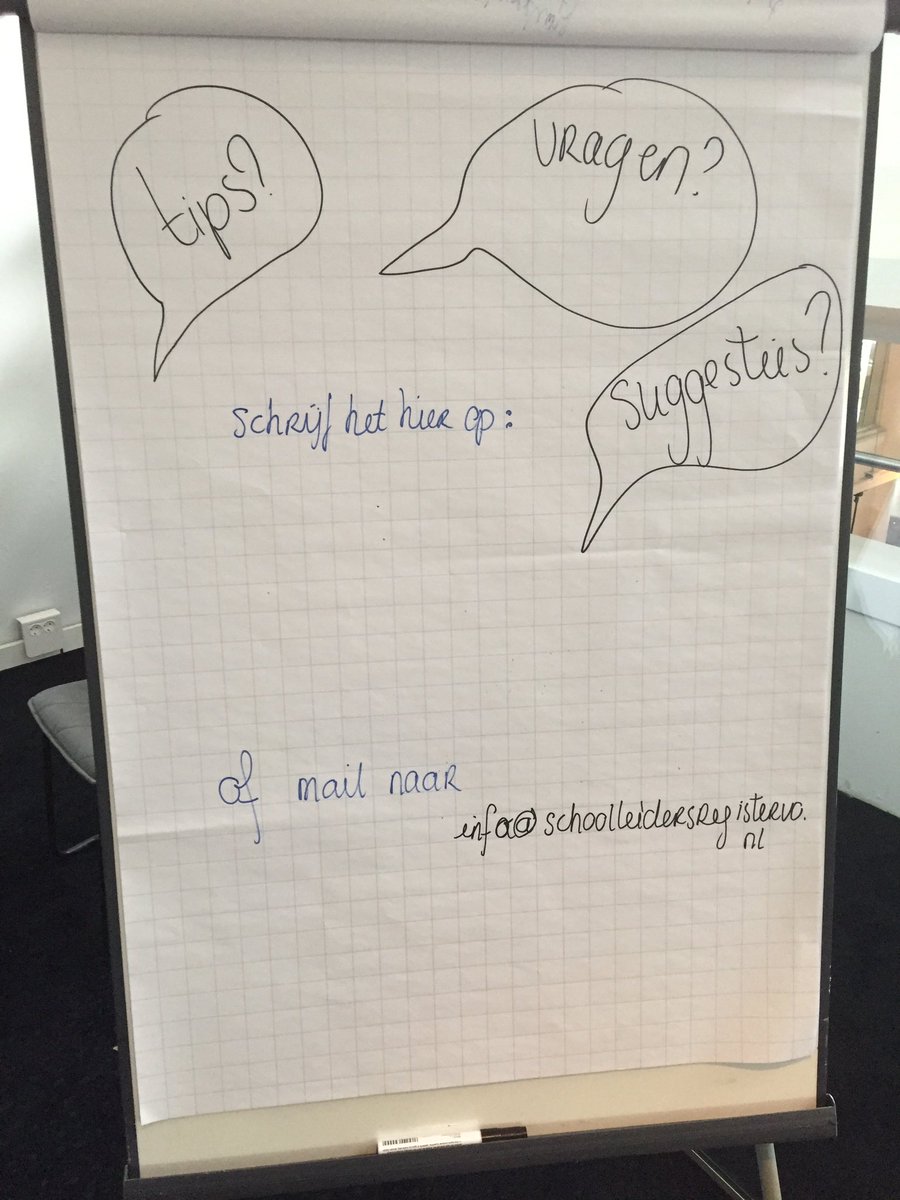 tips?
vragen?
suggesties?
schrijf het hier op:
of mail naar
info@schoolleidersregistervo.
nl